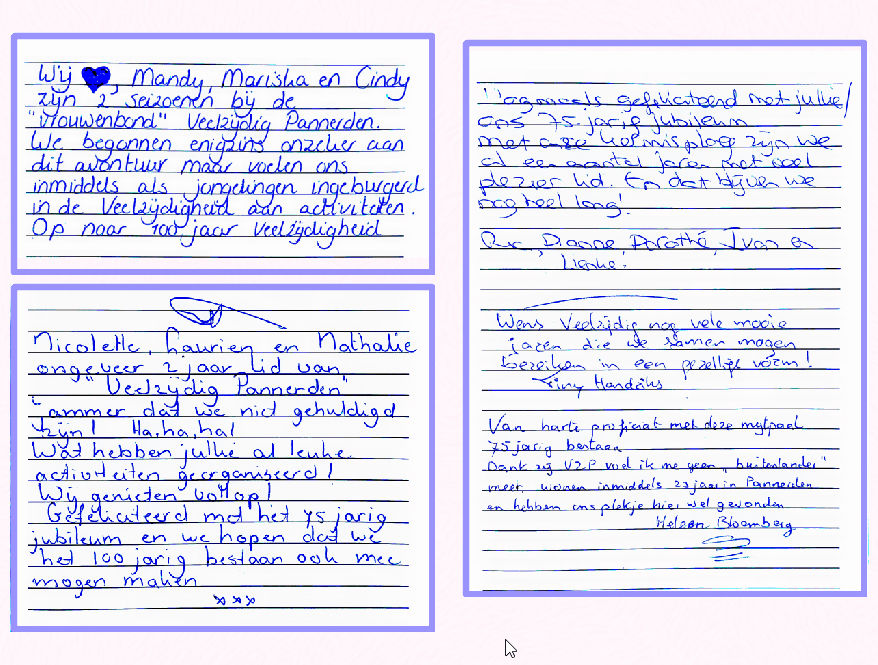 Wij ♥, Mandy, Mariska en Cindy
zijn 2 seizoenen bij de
"Vrouwenbond" Veelzijdig Pannerden.
We begonnen enigzins onzeker aan
dit avontuur maar voelen ons
inmiddels als jongelingen ingeburgerd
in de Veelzijdigheid aan activiteiten.
Op naar 100 jaar Veelzijdigheid
Nicolette, Laurien en Nathalie
ongeveer 2 jaar lid van
"Veelzijdig Pannerden"
Jammer dat we niet gehuldigd
zijn! Ha, ha, ha!
Wat hebben jullie al leuke
activiteiten georganiseerd!
Wij genieten volop!
Gefeliciteerd met het 75 jarig
jubileum en we hopen dat we
het 100 jarig bestaan ook mee
mogen maken
xxx
gefeliciteerd met jullie/
ons 75-jarig jubileum
met onze kermisploeg zijn we
al een aantal jaren met veel
plezier lid. En dat blijven we
nog heel lang!
Dianne, Dorothé, Ivon en
Lienke.
Wens Veelzijdig nog vele mooie
jaren die we samen mogen
bereiken in een gezellige vorm!
Tiny Hendriks
Van harte proficiat met deze mijlpaal
75 jarig bestaan
Dank zij VZP voel ik me geen "buitenlander"
meer, wonen inmiddels 23 jaar in Pannerden
en hebben ons plekje hier wel gevonden
Heleen Bloemberg